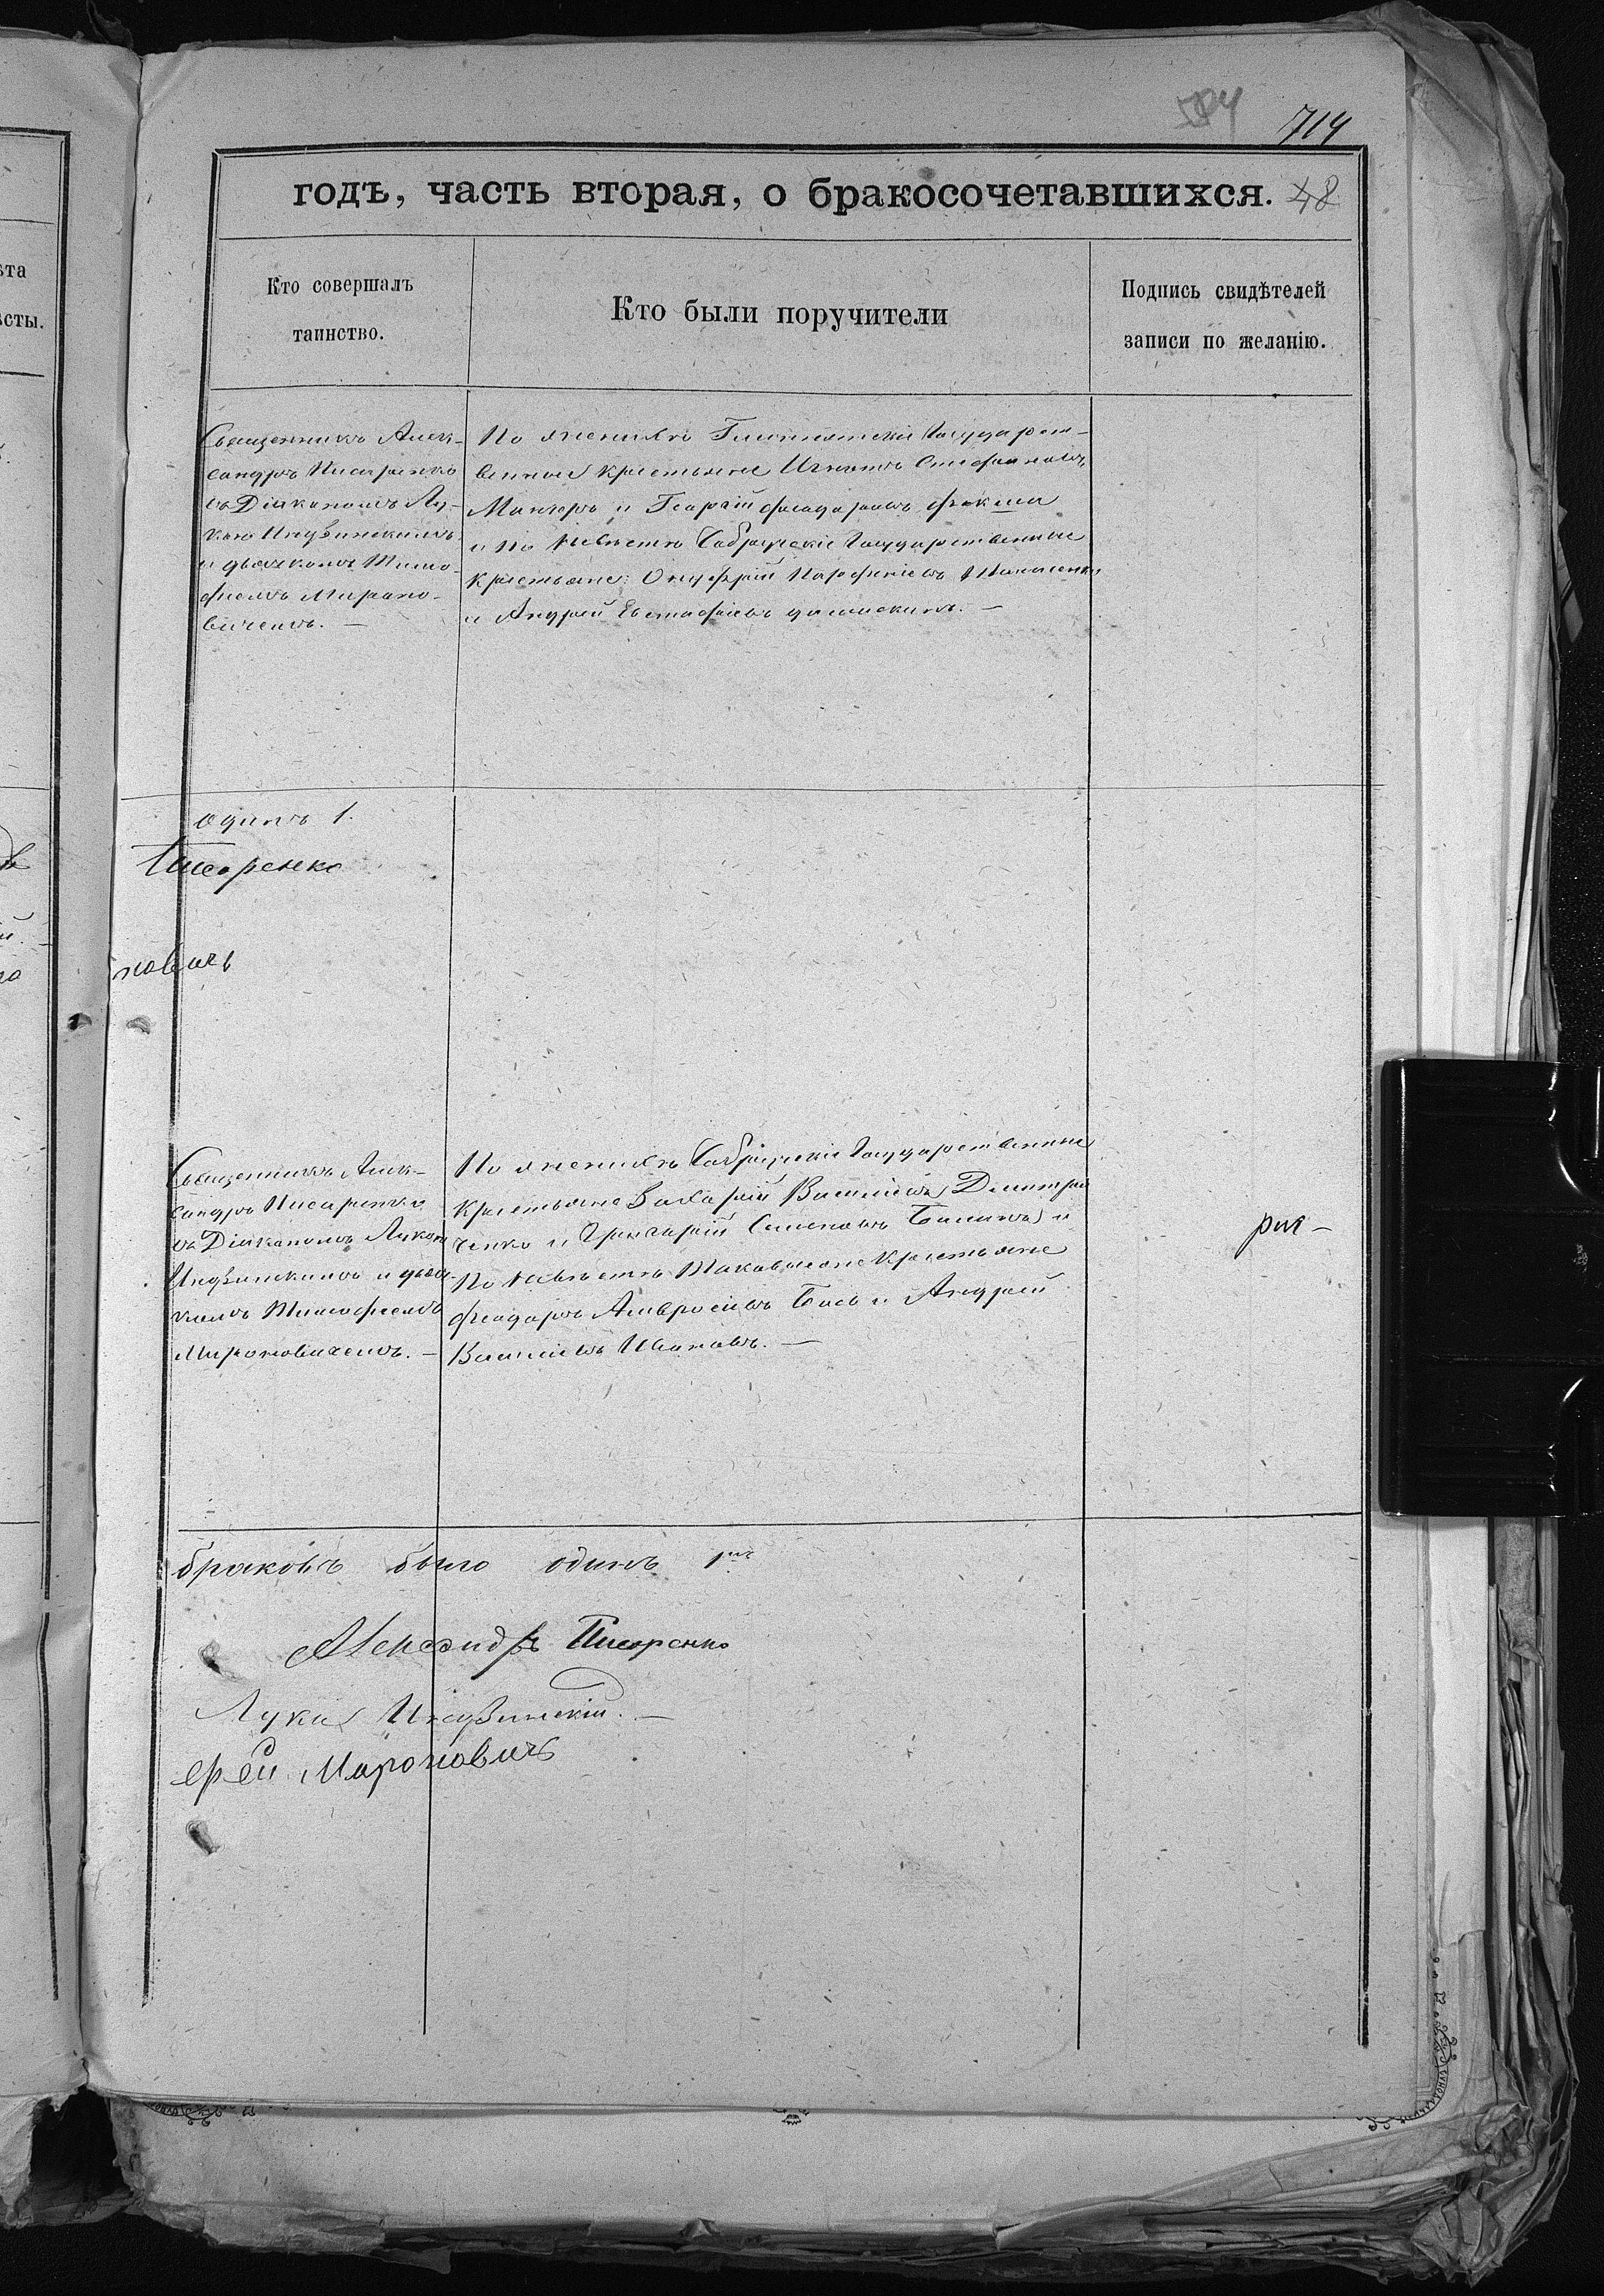 714
годъ, часть вторая, о бракосочетавшихся. 48
Кто совершалъ
таинство.
Кто были поручители
Подпись свидѣтелей
записи по желанію.
Священникъ Алек-
сандръ Писаренко
съ Діакономъ Лу-
кою Индзинскимъ
и дьячкомъ Тимо-
феемъ Мироно-
вичемъ. —
По женихѣ Государст-
венные крестьяне Игнатъ Стефановъ
и Георгій Феодоровъ
и по невѣстѣ Государственные
крестьяне: Онуфрій Парфеніевъ
и Андрей Евстафіевъ
одинъ 1.
Писаренко
новичъ
Священникъ Алек-
сандръ Писаренко
съ Діакономъ Лукою
Индзинскимъ и дьяч-
комъ Тимофеемъ
Мироновичемъ. —
По женихѣ Государственные
крестьяне Захарій Василіевъ Димитри
ченко и Григорій Семеновъ и
По невѣстѣ Таковые же крестьяне
Феодоръ Амвросіевъ Бась и Андрей
Василіевъ Ивановъ. —
браковъ было одинъ 1
Александръ Писаренко
Лука Индзинскій. —
фей Мироновичъ
ѣта
ѣсты.